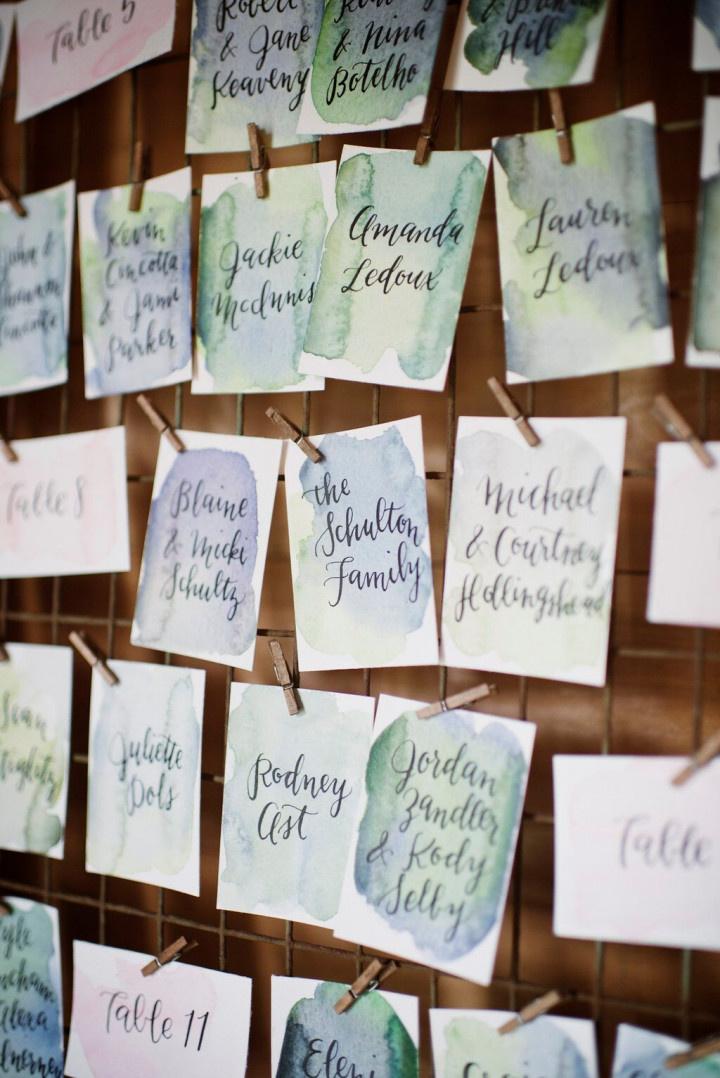 Table 5
Robert
& Jane
Keaveny
& Nina
Botelho
Hill
John &
Kevin
Cincotta
& Jami
Parker
Jackie
McInnis
Amanda
Ledoux
Lauren
Ledoux
Table 8
Blaine
& Micki
Schultz
the
Schulton
Family
Michael
& Courtney
Hollingshead
Sean
Juliette
Dols
Rodney
Ast
Jordan
Zandler
& Kody
Selby
Table
Table 11
Eleni